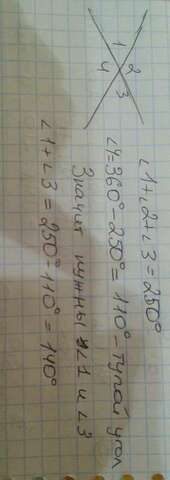 1
4 2
3
∠1+∠2+∠3=250°
∠4=360°-250°=110°-тупой угол
Значит нужны ∠1 и ∠3
∠1+∠3=250°-110°=140°